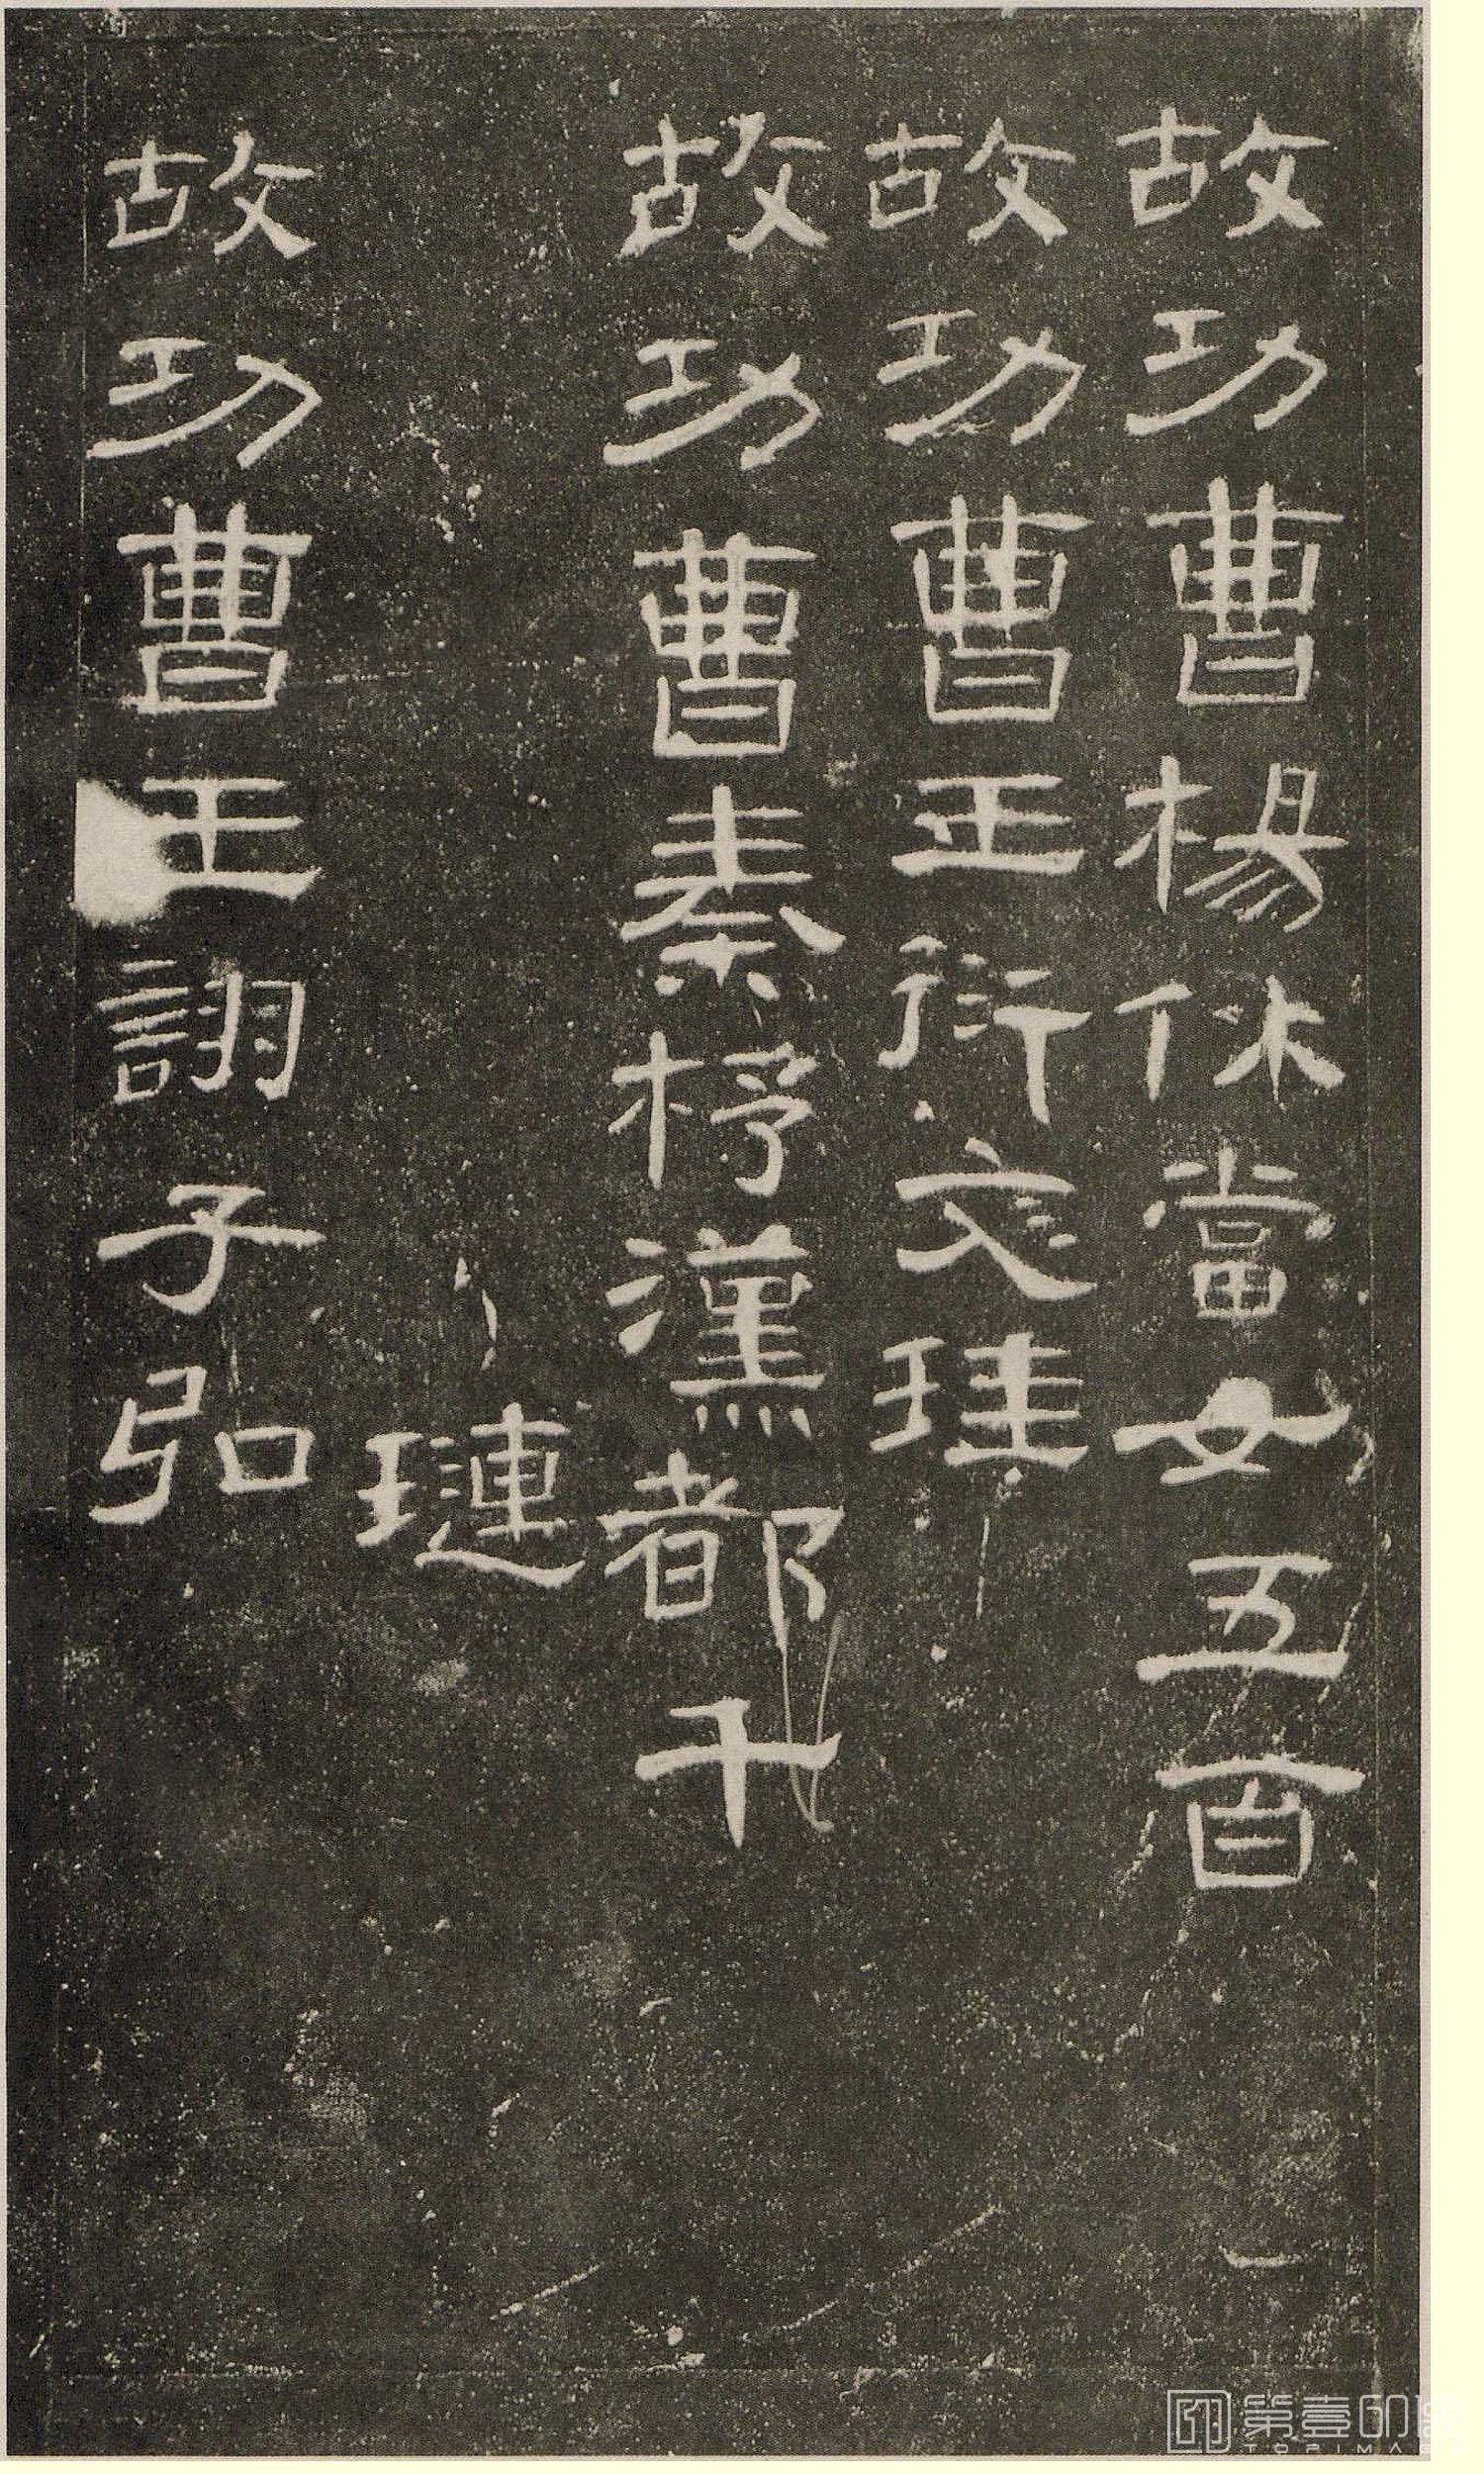 故功曹楊休當女五百
故功曹王衍文珪
故功曹秦杼漢都千
璉
故功曹王詡子弘
第壹印
TOPIMAGE